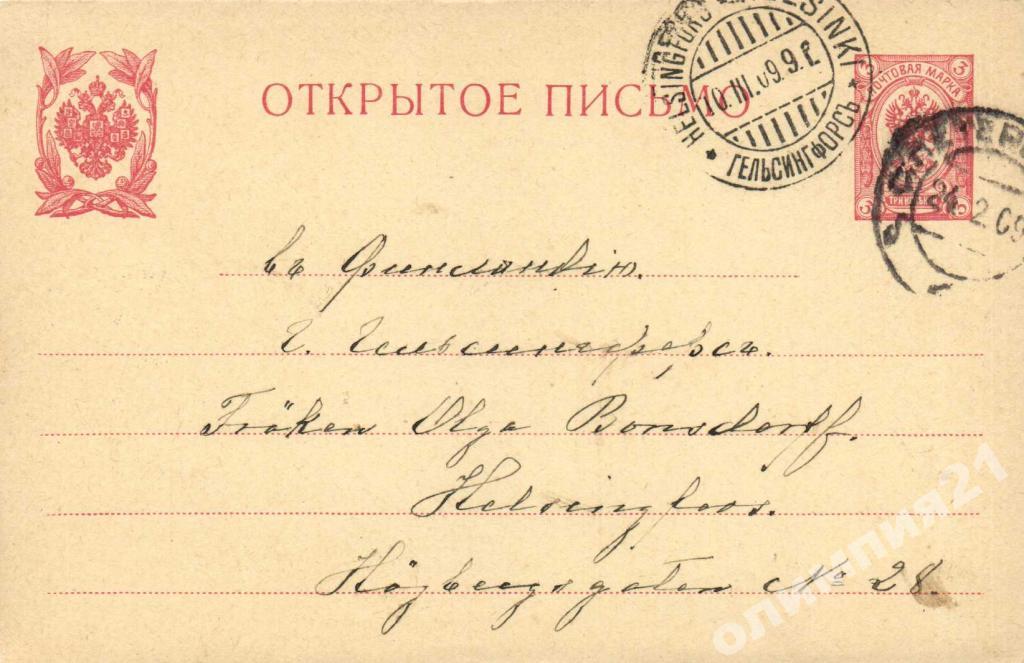 ОТКРЫТОЕ ПИСЬМО
HELSINGFORS HELSINKI
10.III.09.9.
ГЕЛЬСИНГФОРСЪ
3
ПОЧТОВАЯ МАРКА
3 3
24 2 09
въ Финляндію.
г. Гельсингфорсъ.
Fröken Olga Bonsdorff.
Helsingfors.
Högbergsgatan № 28.
олимпия21